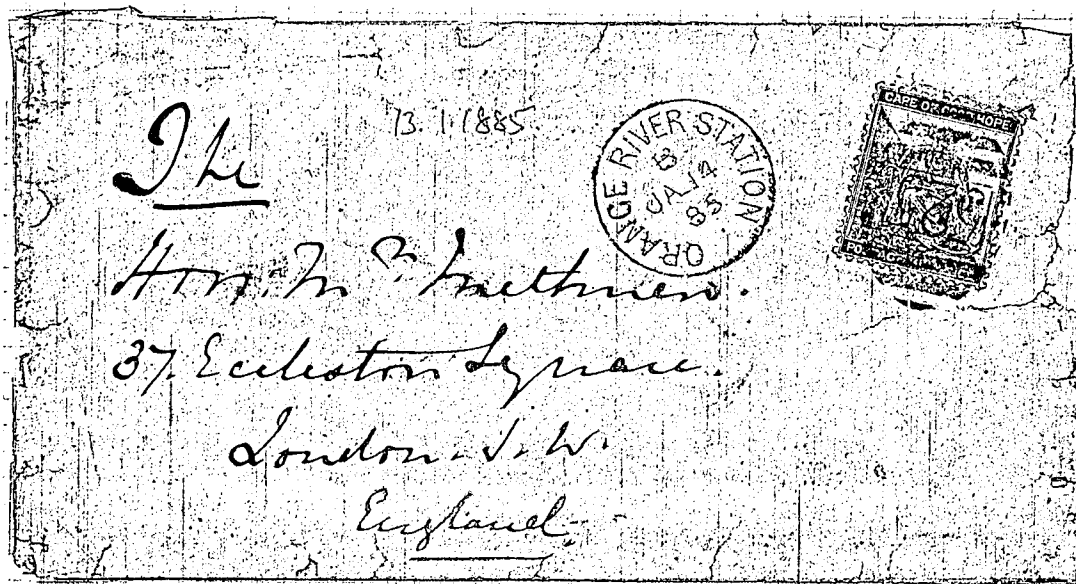 13.1.1885
ORANGE RIVER STATION
B
JA 14
85
CAPE OF GOOD HOPE
The
Hon. Mrs Methuen.
37. Eccleston Square.
London. S. W.
England.